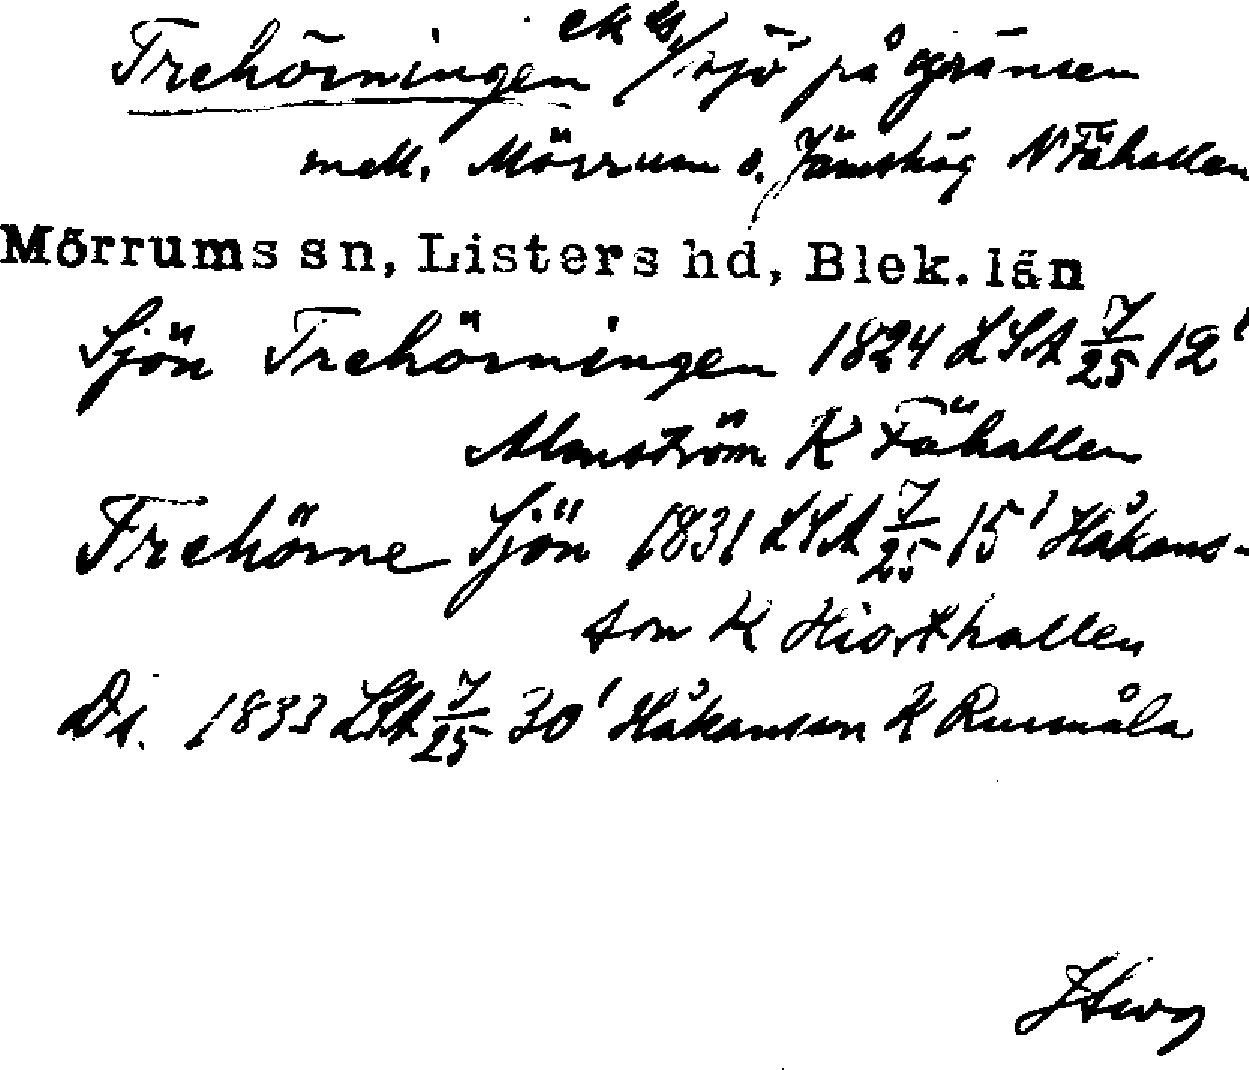 Trehörningen ek bl / sjö på gränsen
mell. Mörrum o. Jämshög N Fähallen
Mörrums sn, Listers hd, Blek. län
Sjön Trehörningen 1824 LSA 7/25 12'
Almström K Fähallen
Trehörne Sjön 1831 LSA 7/25 15' Håkans-
son K Hiorthallen
Ds. 1833 LSA 7/25 30' Håkanson K Rusmåla